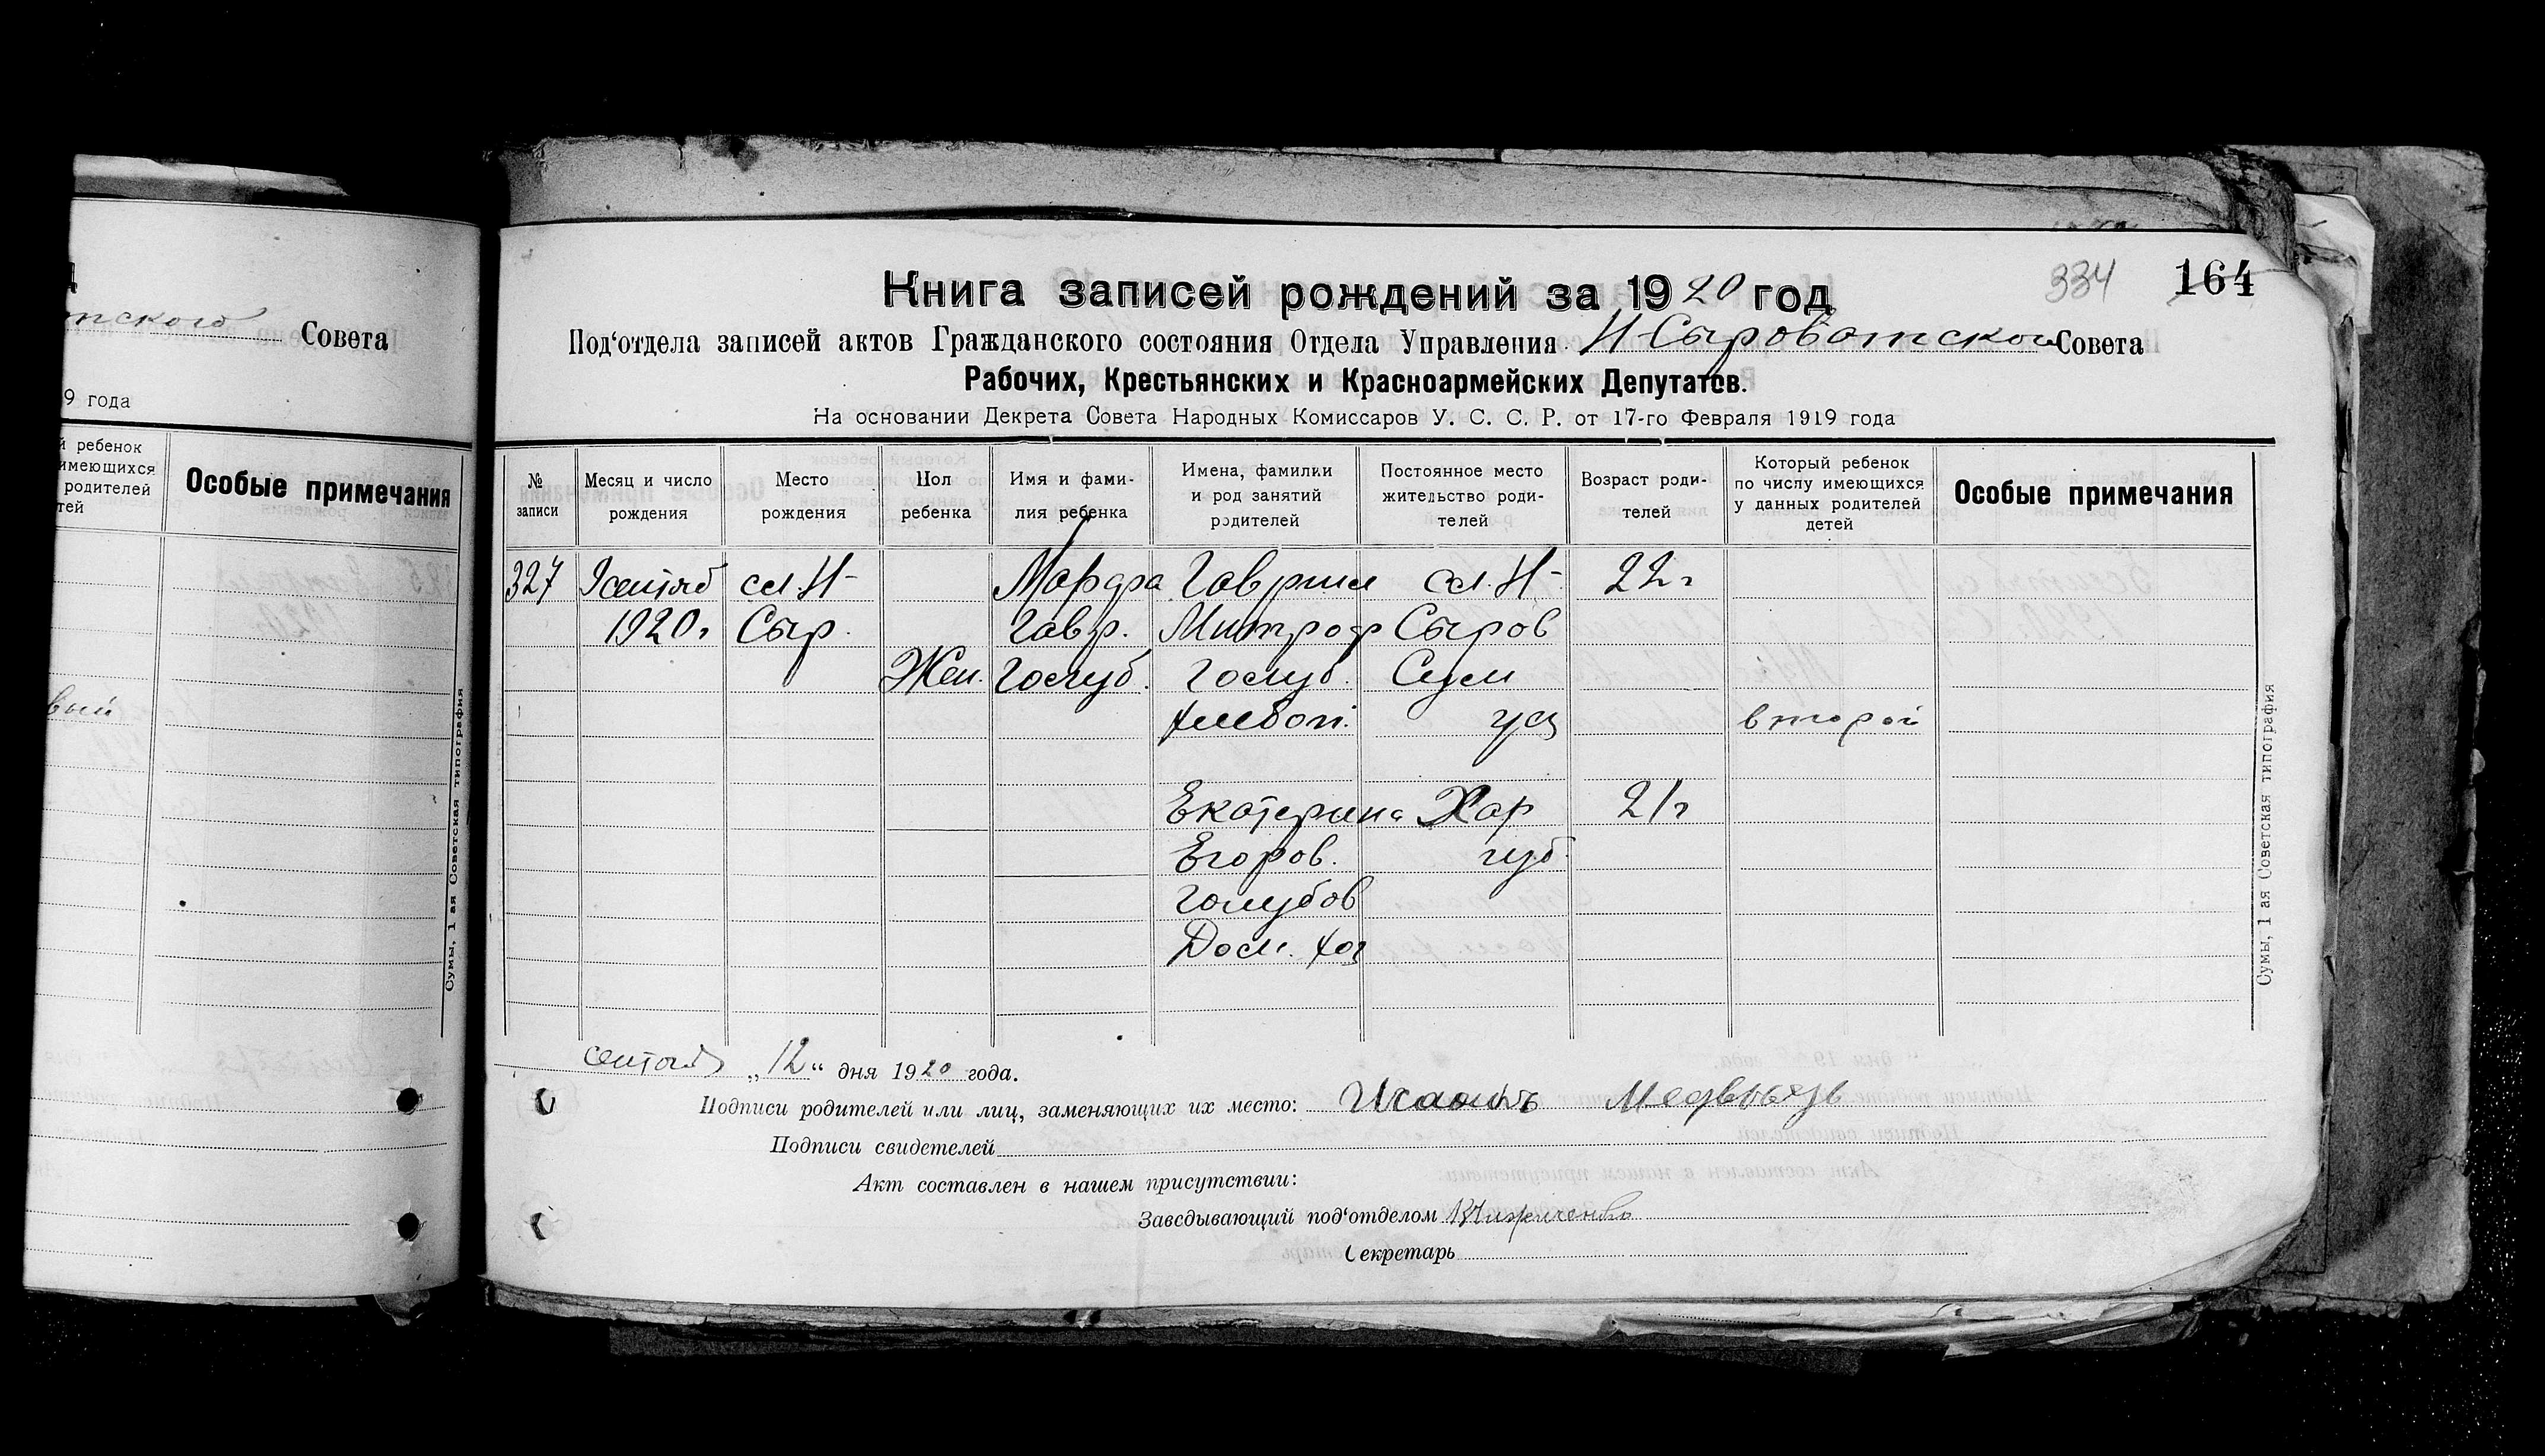 тского Совета
9 года
й ребенок
имеющихся
родителей
тей
Особые примечания
вый
Сумы, 1 ая Советская типография
334 164
Книга записей рождений за 1920 год
Под'отдела записей актов Гражданского состояния Отдела Управления Н-Сыроватского Совета
Рабочих, Крестьянских и Красноармейских Депутатов.
На основании Декрета Совета Народных Комиссаров У. С. С. Р. от 17-го Февраля 1919 года
№ записи
Месяц и число рождения
Место рождения
Пол ребенка
Имя и фами-
лия ребенка
Имена, фамилии
и род занятий
родителей
Постоянное место
жительство роди-
телей
Возраст роди-
телей
Который ребенок
по числу имеющихся
у данных родителей
детей
Особые примечания
327 сентяб сл. Н- Марфа Гаврил сл. Н- 22 г
1920 г. Сыр. Гавр. Митроф Сыров
Жен. Голуб. Голуб. Сум
хлебоп. уез второй
Екатерина Хар 21 г
Егоров. губ.
Голубов
Дом. хоз
Сумы, 1 ая Советская типография
сентяб „12“ дня 1920 года.
Подписи родителей или лиц, заменяющих их место: Медвьязь
Подписи свидетелей
Акт составлен в нашем присутствии:
Заведывающий под'отделом
Секретарь